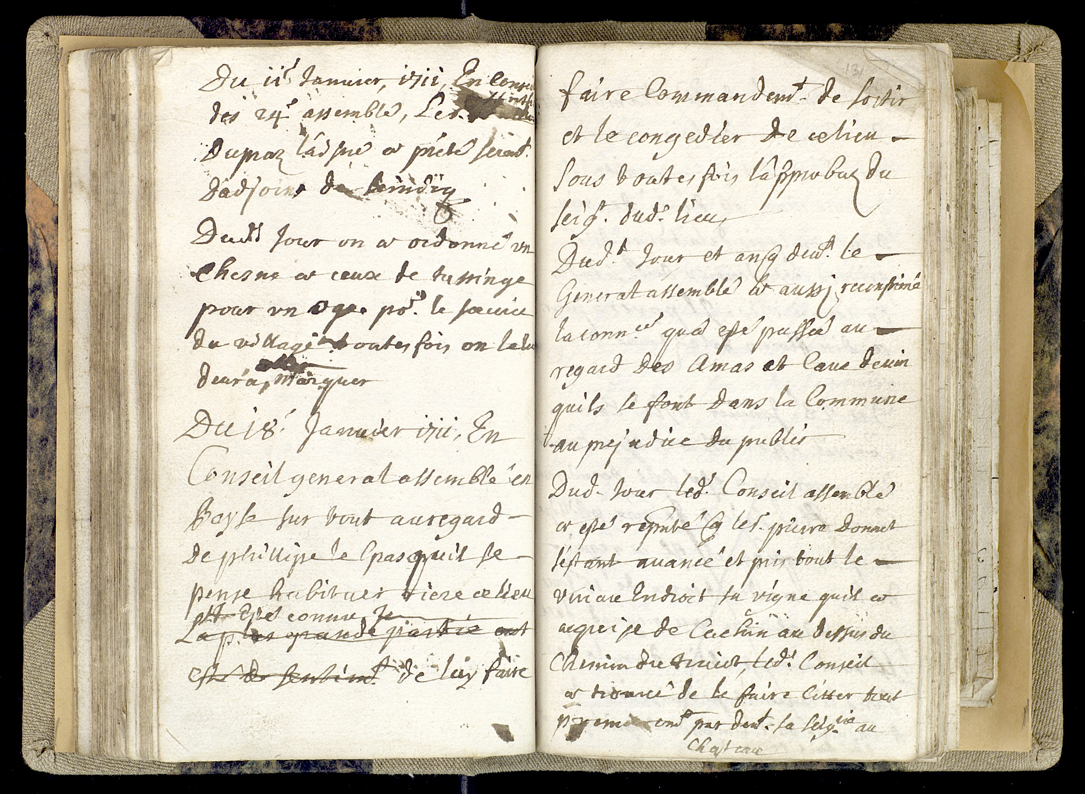 Du 11.e Janvier, 1711, En Conseil
des 24.e assemblé, Les
Dupraz l'aisné a presté serent.
Dadjoint de
Dud.t Jour on a ordonné un
Chesne a ceux de tassinge
pour un po.r le service
du village toutes fois on le leu
deura marquer
Du 18.e Janvier 1711, En
Conseil general assemblé en
sur tout au regard
De phillipe le Cpas quil se
pense habituer riere ce lieu
Est connu
La plus grande partie ont
esté de sentim.t de luy faire
131
faire Commandem.t de sortir
et le congedier de ce lieu
Sous toutes fois lâpprobaz du
seig.r dud.t lieu
Dud.t Jour et dev.t le
General assemblé a aussj reconfirmé
la conn.ce qua esté passée au
regard des Amas et Caue de vin
quils se font dans la Commune
au prejudice du public
Dud. Jour led.t Conseil assemblé
a esté raporté q les.r pierre Donnet
sestant auancé et pris tout le
Endroit sa vigne quil a
acquise de Cachin au dessus du
Chemin led.t Conseil
a trouué de le faire Citter tout
par dev.t la seig.rie au
Chateau